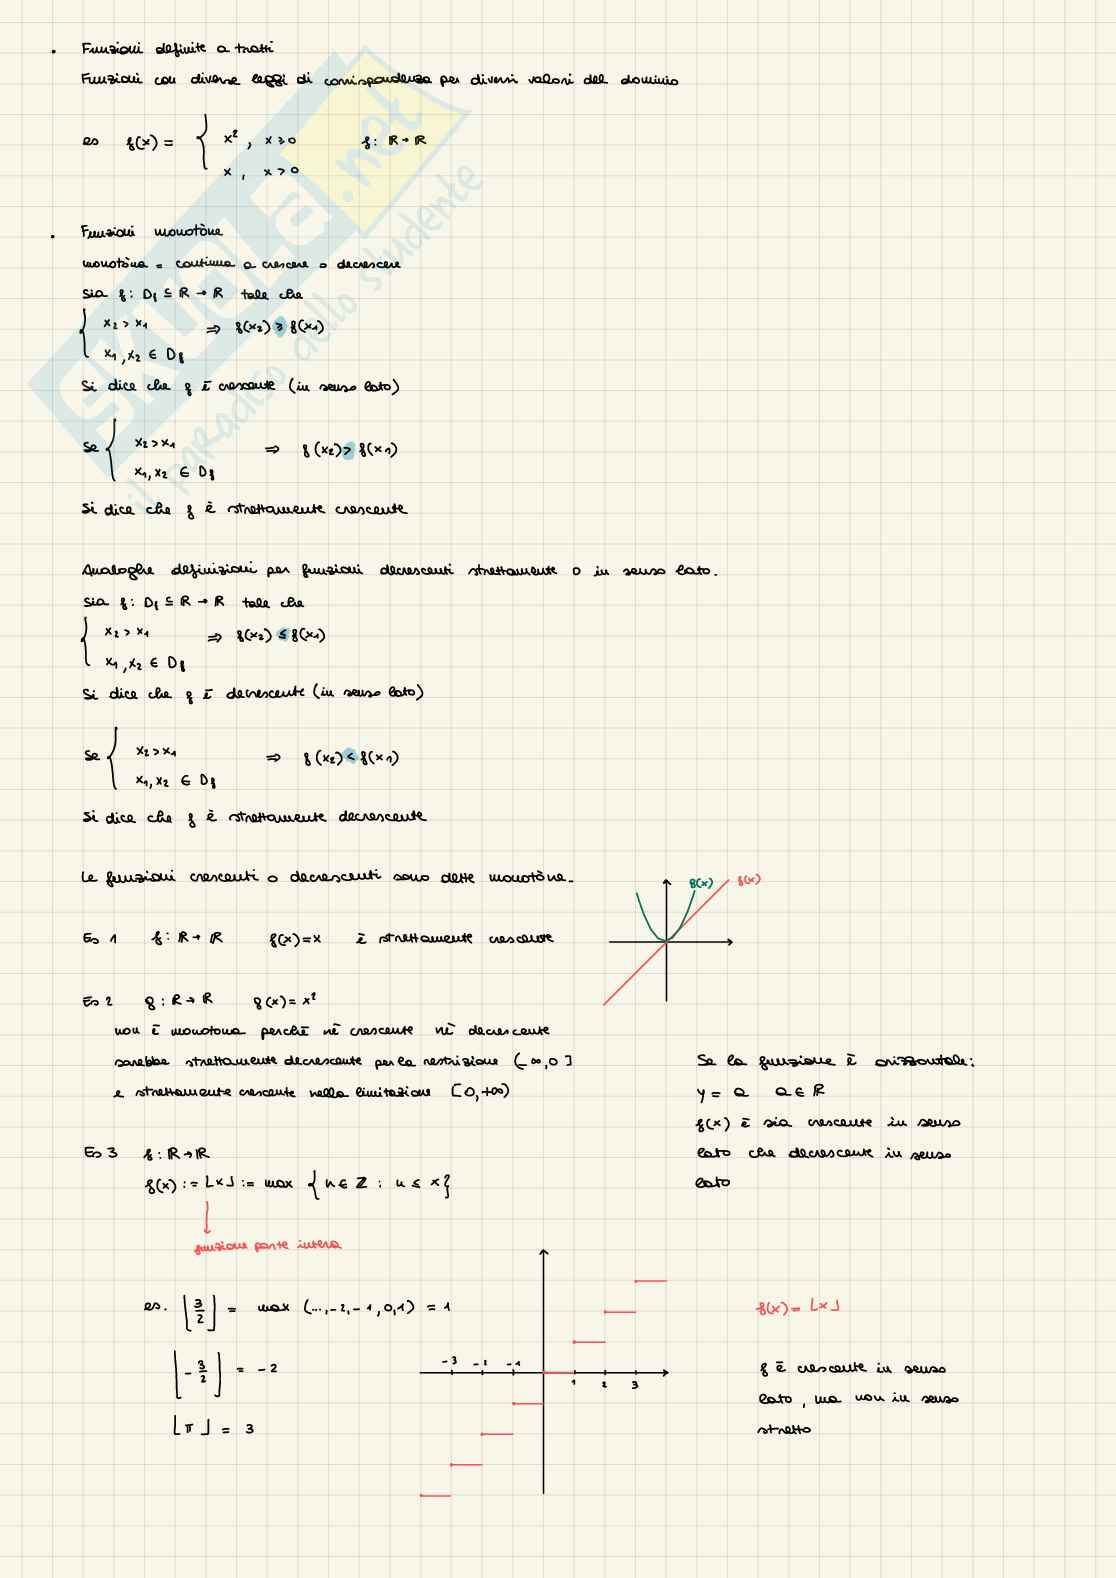 • Funzioni definite a tratti
Funzioni con diverse leggi di corrispondenza per diversi valori del dominio
es f(x) = { x² , x ⩾ 0 f: ℝ → ℝ
x , x > 0
• Funzioni monotòne
monotòna = continua a crescere o decrescere
Sia f: Df ⊆ ℝ → ℝ tale che
{ x₂ > x₁ ⇒ f(x₂) ⩾ f(x₁)
x₁, x₂ ∈ Df
Si dice che f è crescente (in senso lato)
Se { x₂ > x₁ ⇒ f(x₂) > f(x₁)
x₁, x₂ ∈ Df
Si dice che f è strettamente crescente
Analoghe definizioni per funzioni decrescenti strettamente o in senso lato.
Sia f: Df ⊆ ℝ → ℝ tale che
{ x₂ > x₁ ⇒ f(x₂) ≤ f(x₁)
x₁, x₂ ∈ Df
Si dice che f è decrescente (in senso lato)
Se { x₂ > x₁ ⇒ f(x₂) < f(x₁)
x₁, x₂ ∈ Df
Si dice che f è strettamente decrescente
Le funzioni crescenti o decrescenti sono dette monotòne.
g(x) f(x)
Es 1 f: ℝ → ℝ f(x) = x è strettamente crescente
Es 2 g: ℝ → ℝ g(x) = x²
non è monotona perchè nè crescente nè decrescente
sarebbe strettamente decrescente per la restrizione (-∞,0]
e strettamente crescente nella limitazione [0,+∞)
Se la funzione è orizzontale:
y = a a ∈ ℝ
f(x) è sia crescente in senso
lato che decrescente in senso
lato
Es 3 f: ℝ → ℝ
f(x) := ⌊x⌋ := max { n ∈ ℤ : n ≤ x }
funzione parte intera
es. ⌊3/2⌋ = max (...,-2,-1,0,1) = 1
⌊-3/2⌋ = -2
⌊π⌋ = 3
-3 -2 -1
1 2 3
f(x) = ⌊x⌋
f è crescente in senso
lato, ma non in senso
stretto
SKUOLA.net
il paradiso dello studente